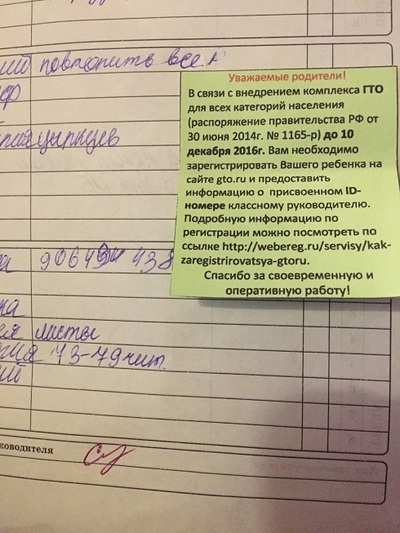 ий повторить все
Уважаемые родители!
В связи с внедрением комплекса ГТО
для всех категорий населения
(распоряжение правительства РФ от
30 июня 2014г. № 1165-р) до 10
декабря 2016г. Вам необходимо
зарегистрировать Вашего ребенка на
сайте gto.ru и предоставить
информацию о присвоенном ID-
номере классному руководителю.
Подробную информацию по
регистрации можно посмотреть по
ссылке http://webereg.ru/servisy/kak-
zaregistrirovatsya-gtoru.
Спасибо за своевременную и
оперативную работу!
ка
листы
73-79 чит.
ий
ководителя